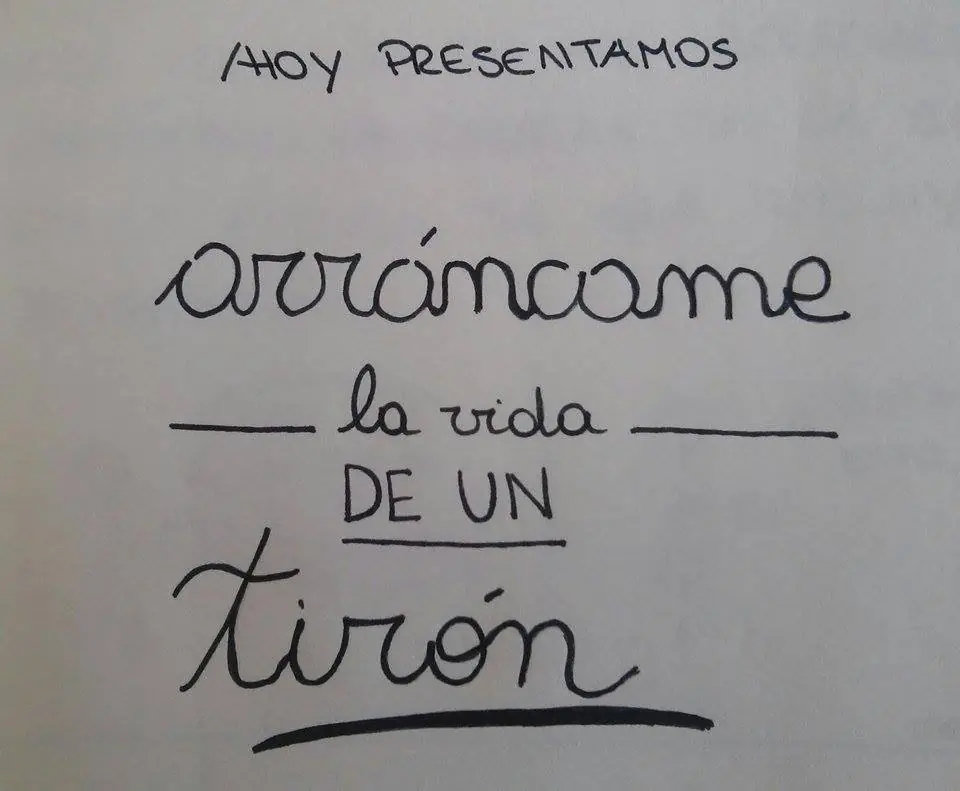 HOY PRESENTAMOS
arráncame
la vida
DE UN
tirón